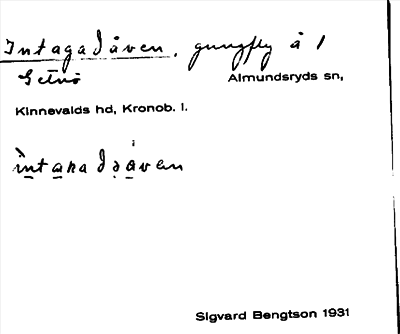 Intagadåven, gungfly å 1
Getnö Almundsryds sn,
Kinnevalds hd, Kronob. l.
Sigvard Bengtson 1931